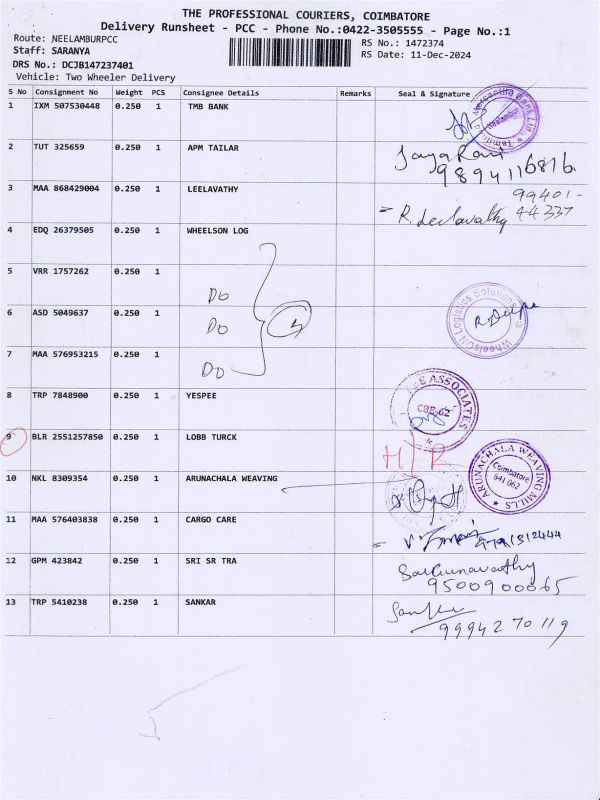 THE PROFESSIONAL COURIERS, COIMBATORE
Delivery Runsheet - PCC - Phone No.:0422-3505555 - Page No.:1
Route: NEELAMBURPCC
RS No.: 1472374
Staff: SARANYA
RS Date: 11-Dec-2024
DRS No.: DCJB147237401
Vehicle: Two Wheeler Delivery
S No Consignment No Weight PCS Consignee Details Remarks Seal & Signature
1 IXM 507530448 0.250 1 TMB BANK
2 TUT 325659 0.250 1 APM TAILAR
9894116816
3 MAA 868429004 0.250 1 LEELAVATHY
99401-
R. Leelavathy 44337
4 EDQ 26379505 0.250 1 WHEELSON LOG
5 VRR 1757262 0.250 1
DO
WheelsON Logistics Solutions
6 ASD 5049637 0.250 1
DO 4
7 MAA 576953215 0.250 1
DO
8 TRP 7848900 0.250 1 YESPEE
ASSOCIATES
CBE-62
9 BLR 2551257850 0.250 1 LOBB TURCK
H/R
10 NKL 8309354 0.250 1 ARUNACHALA WEAVING
ARUNACHALA WEAVING MILLS
Coimbatore
641 062
11 MAA 576403838 0.250 1 CARGO CARE
12 GPM 423842 0.250 1 SRI SR TRA
9500900065
13 TRP 5410238 0.250 1 SANKAR
99942 70119